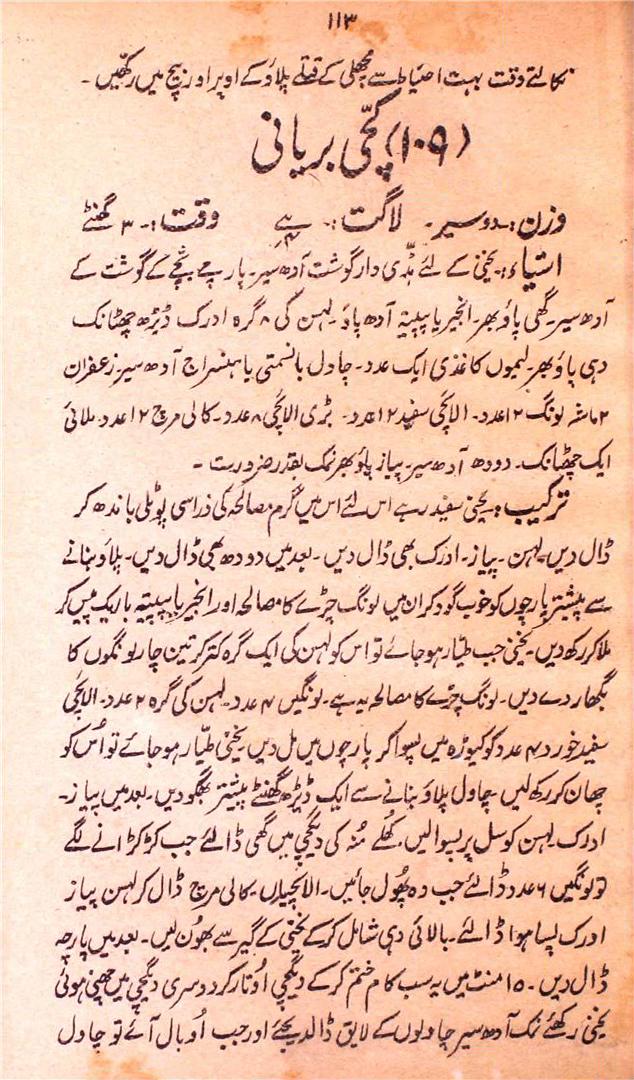 ۱۱۳
نکالتے وقت بہت احتیاط سے مچھلی کے قتلے پلاؤ کے اوپر اور بیچ میں رکھیں۔
(۱۰۹) کچّی بریانی
وزن:۔ دو سیر۔ لاگت:۔ وقت:۔ ۳ گھنٹے
اشیاء:۔ یخنی کے لئے ہڈی دار گوشت آدھ سیر۔ پارچے نیچے کے گوشت کے
آدھ سیر۔ گھی پاؤ بھر۔ انجیر یا پپیتہ آدھ پاؤ۔ لہسن کی ۸ گرہ ادرک ڈیڑھ چھٹانک
دہی پاؤ بھر۔ لیموں کاغذی ایک عدد۔ چاول بانسمتی یا ہنسراج آدھ سیر۔ زعفران
۲ ماشہ لونگ ۱۲ عدد۔ الائچی سفید ۱۲ عدد۔ بڑی الائچی ۸ عدد۔ کالی مرچ ۱۲ عدد۔ ملائی
ایک چھٹانک۔ دودھ آدھ سیر۔ پیاز پاؤ بھر نمک بقدر ضرورت۔
ترکیب:۔ یخنی سفید رہے اس لئے اس میں گرم مصالحہ کی ذرا سی پوٹلی باندھ کر
ڈال دیں۔ لہسن۔ پیاز۔ ادرک بھی ڈال دیں۔ بعد میں دودھ بھی ڈال دیں۔ پلاؤ بنانے
سے پیشتر پارچوں کو خوب گود کر ان میں لونگ چڑے کا مصالحہ اور انجیر یا پپیتہ باریک پیس کر
ملا کر رکھ دیں۔ یخنی جب طیّار ہو جائے تو اس کو لہسن کی ایک گرہ کتر کر تین چار لونگوں کا
بگھار دے دیں۔ لونگ چڑے کا مصالحہ یہ ہے۔ لونگیں ۴ عدد۔ لہسن کی گرہ ۲ عدد۔ الائچی
سفید خورد ۴ عدد کو کیوڑہ میں پسوا کر پارچوں میں مل دیں یخنی طیّار ہو جائے تو اُس کو
چھان کر رکھ لیں۔ چاول پلاؤ بنانے سے ایک ڈیڑھ گھنٹے پیشتر بھگو دیں۔ بعد میں پیاز۔
ادرک۔ لہسن کو سل پر پسوا لیں۔ کھُلے مُنہ کی دیگچی میں گھی ڈالئے جب کڑکڑانے لگے
تو لونگیں ۶ عدد ڈالئے جب وہ پھُول جائیں۔ الائچیاں۔ کالی مرچ ڈال کر لہسن پیاز
ادرک پسا ہوا ڈالئے۔ بالائی دہی شامل کر کے یخنی کے گیر سے بھُون لیں۔ بعد میں پارچہ
ڈال دیں۔ ۱۵ منٹ میں یہ سب کام ختم کر کے دیگچی اُوتار کر دوسری دیگچی میں چھنی ہوئی
یخنی رکھئے نمک آدھ سیر چاولوں کے لایق ڈالدیجئے اور جب اُوبال آئے تو چاول